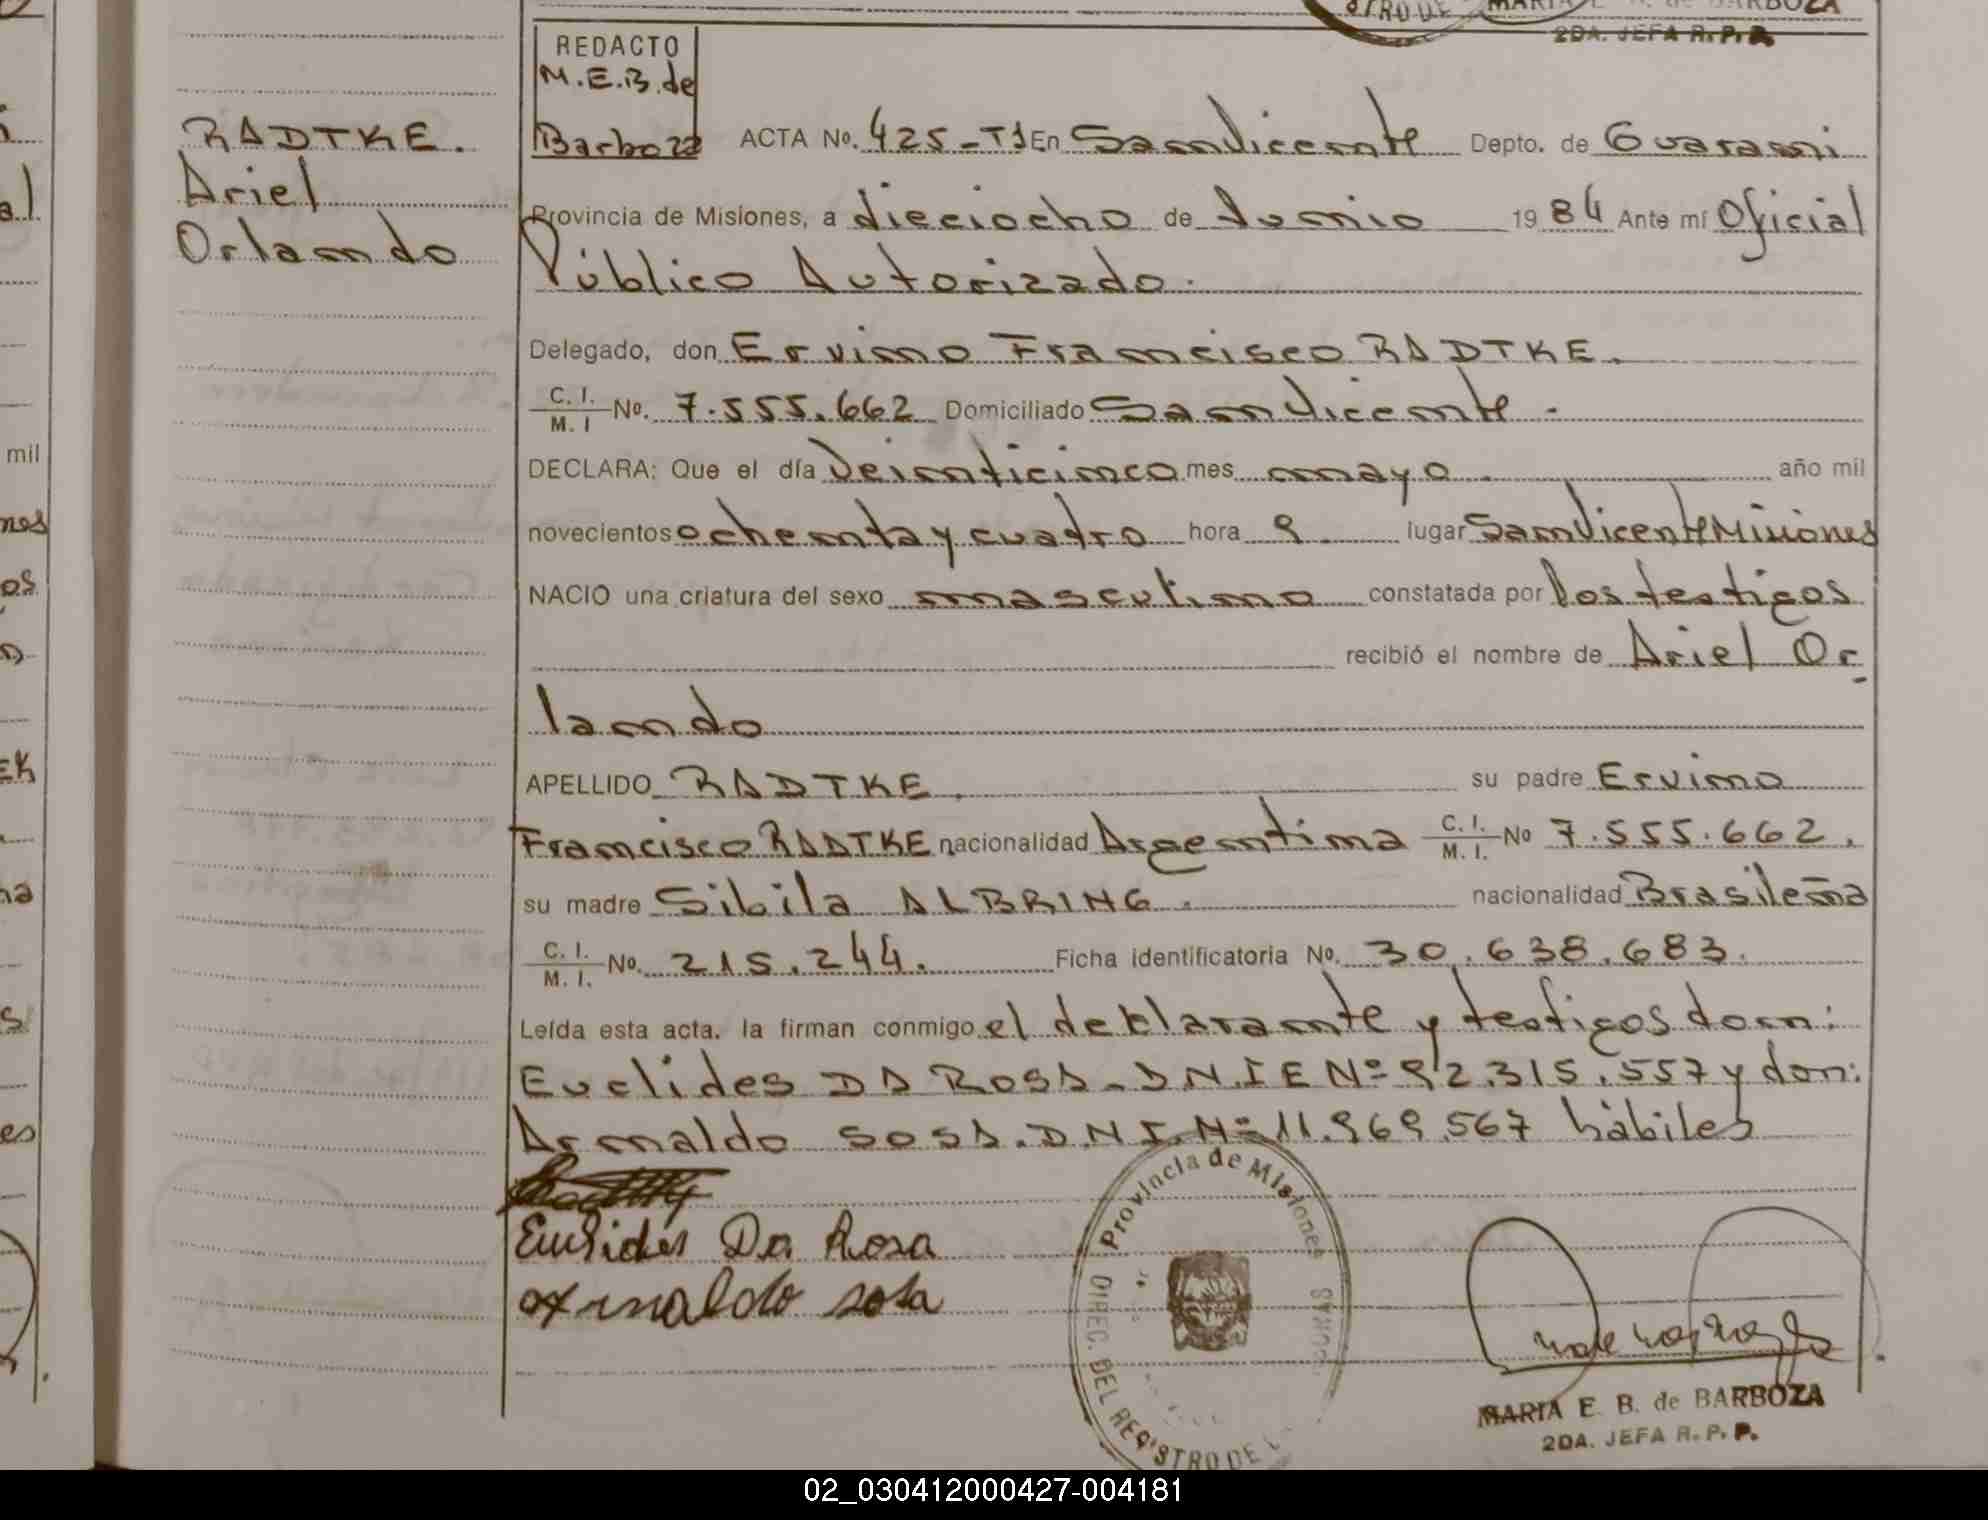 MARIA E. B. de BARBOZA
2DA. JEFA R. P. P.
REDACTO
M.E.B. de
Barboza
RADTKE.
Ariel
Orlando
ACTA Nº. 425-T1 En San Vicente Depto. de Guarani
Provincia de Misiones, a dieciocho de Junio 1984 Ante mí Oficial
Público Autorizado.
Delegado, don Ervino Francisco RADTKE.
C. I. / M. I Nº. 7.555.662 Domiciliado San Vicente.
DECLARA: Que el día Veinticinco mes mayo año mil
novecientos ochenta y cuadro hora 9. lugar San Vicente Misiones
NACIO una criatura del sexo masculino constatada por los testigos
recibió el nombre de Ariel Or
lando
APELLIDO RADTKE. su padre Ervino
Francisco RADTKE nacionalidad Argentina C. I. / M. I. Nº 7.555.662.
su madre Sibila ALBRING. nacionalidad Brasileña
C. I. / M. I. Nº. 215.244. Ficha identificatoria Nº. 30.638.683.
Leída esta acta, la firman conmigo el deklarante y testigos don:
Euclides DA ROSA. D.N.I E Nº 92.315.557 y don:
Arnaldo SOSA. D.N.I. Nº 11.969.567 hábiles
Euclides Da Rosa
Arnaldo sosa
Provincia de Misiones
DIREC. DEL REGISTRO DE
MARIA E. B. de BARBOZA
2DA. JEFA R. P. P.
02_030412000427-004181